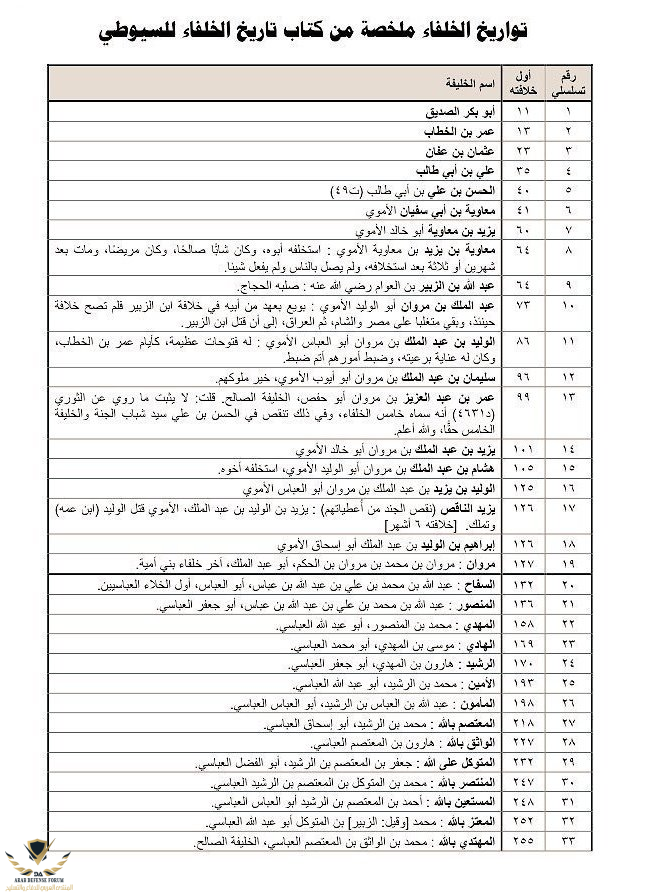 تواريخ الخلفاء ملخصة من كتاب تاريخ الخلفاء للسيوطي
رقم تسلسلي أول خلافته اسم الخليفة
١ ١١ أبو بكر الصديق
٢ ١٣ عمر بن الخطاب
٣ ٢٣ عثمان بن عفان
٤ ٣٥ علي بن أبي طالب
٥ ٤٠ الحسن بن علي بن أبي طالب (ت٤٩)
٦ ٤١ معاوية بن أبي سفيان الأموي
٧ ٦٠ يزيد بن معاوية أبو خالد الأموي
٨ ٦٤ معاوية بن يزيد بن معاوية الأموي : استخلفه أبوه، وكان شابًّا صالحًا، وكان مريضًا، ومات بعد
شهرين أو ثلاثة بعد استخلافه، ولم يصل بالناس ولم يفعل شيئا.
٩ ٦٤ عبد الله بن الزبير بن العوام رضي الله عنه : صلبه الحجاج.
١٠ ٧٣ عبد الملك بن مروان أبو الوليد الأموي : بويع بعهد من أبيه في خلافة ابن الزبير فلم تصح خلافة
حينئذ، وبقي متغلبا على مصر والشام، ثم العراق، إلى أن قتل ابن الزبير.
١١ ٨٦ الوليد بن عبد الملك بن مروان أبو العباس الأموي : له فتوحات عظيمة، كأيام عمر بن الخطاب،
وكان له عناية برعيته، وضبط أمورهم أتم ضبط.
١٢ ٩٦ سليمان بن عبد الملك بن مروان أبو أيوب الأموي، خير ملوكهم.
١٣ ٩٩ عمر بن عبد العزيز بن مروان أبو حفص، الخليفة الصالح. قلت: لا يثبت ما روي عن الثوري
(د٤٦٣١) أنه سماه خامس الخلفاء، وفي ذلك تنقص في الحسن بن علي سيد شباب الجنة والخليفة
الخامس حقًّا، والله أعلم.
١٤ ١٠١ يزيد بن عبد الملك بن مروان أبو خالد الأموي
١٥ ١٠٥ هشام بن عبد الملك بن مروان أبو الوليد الأموي، استخلفه أخوه.
١٦ ١٢٥ الوليد بن يزيد بن عبد الملك بن مروان أبو العباس الأموي
١٧ ١٢٦ يزيد الناقص (نقص الجند من أعطياتهم) : يزيد بن الوليد بن عبد الملك، الأموي قتل الوليد (ابن عمه)
وتملك. [خلافته ٦ أشهر]
١٨ ١٢٦ إبراهيم بن الوليد بن عبد الملك أبو إسحاق الأموي
١٩ ١٢٧ مروان : مروان بن محمد بن مروان بن الحكم، أبو عبد الملك، آخر خلفاء بني أمية.
٢٠ ١٣٢ السفاح : عبد الله بن محمد بن علي بن عبد الله بن عباس، أبو العباس، أول الخلاء العباسيين.
٢١ ١٣٦ المنصور : عبد الله بن محمد بن علي بن عبد الله بن عباس، أبو جعفر العباسي.
٢٢ ١٥٨ المهدي : محمد بن المنصور، أبو عبد الله العباسي.
٢٣ ١٦٩ الهادي : موسى بن المهدي، أبو محمد العباسي.
٢٤ ١٧٠ الرشيد : هارون بن المهدي، أبو جعفر العباسي.
٢٥ ١٩٣ الأمين : محمد بن الرشيد، أبو عبد الله العباسي.
٢٦ ١٩٨ المأمون : عبد الله بن العباس بن الرشيد، أبو العباس العباسي.
٢٧ ٢١٨ المعتصم بالله : محمد بن الرشيد، أبو إسحاق العباسي.
٢٨ ٢٢٧ الواثق بالله : هارون بن المعتصم العباسي.
٢٩ ٢٣٢ المتوكل على الله : جعفر بن المعتصم بن الرشيد، أبو الفضل العباسي.
٣٠ ٢٤٧ المنتصر بالله : محمد بن المتوكل بن المعتصم بن الرشيد العباسي.
٣١ ٢٤٨ المستعين بالله : أحمد بن المعتصم بن الرشيد أبو العباس العباسي.
٣٢ ٢٥٢ المعتز بالله : محمد [وقيل: الزبير] بن المتوكل أبو عبد الله العباسي.
٣٣ ٢٥٥ المهتدي بالله : محمد بن الواثق بن المعتصم العباسي، الخليفة الصالح.
ARAB DEFENSE FORUM
المنتدى العربي للدفاع والتسليح